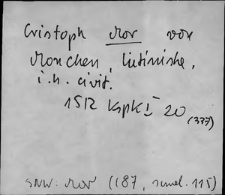 Cristoph Mor von
Monchen, lutiniste,
i.h. civit.
1512 KspK I 20
(377)
SNW. Mor (187, numel. 115)